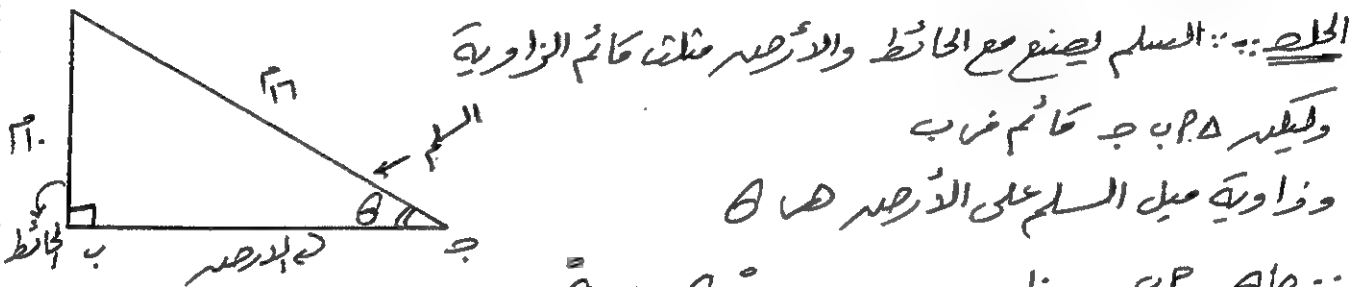 الحل :: ∵ السلم يصنع مع الحائط والأرض مثلث قائم الزاوية
وليكن △ أ ب جـ قائم في ب
وزاوية ميل السلم على الأرض هى θ
١٦م
السلم
θ
الحائط
ب
الأرض
جـ